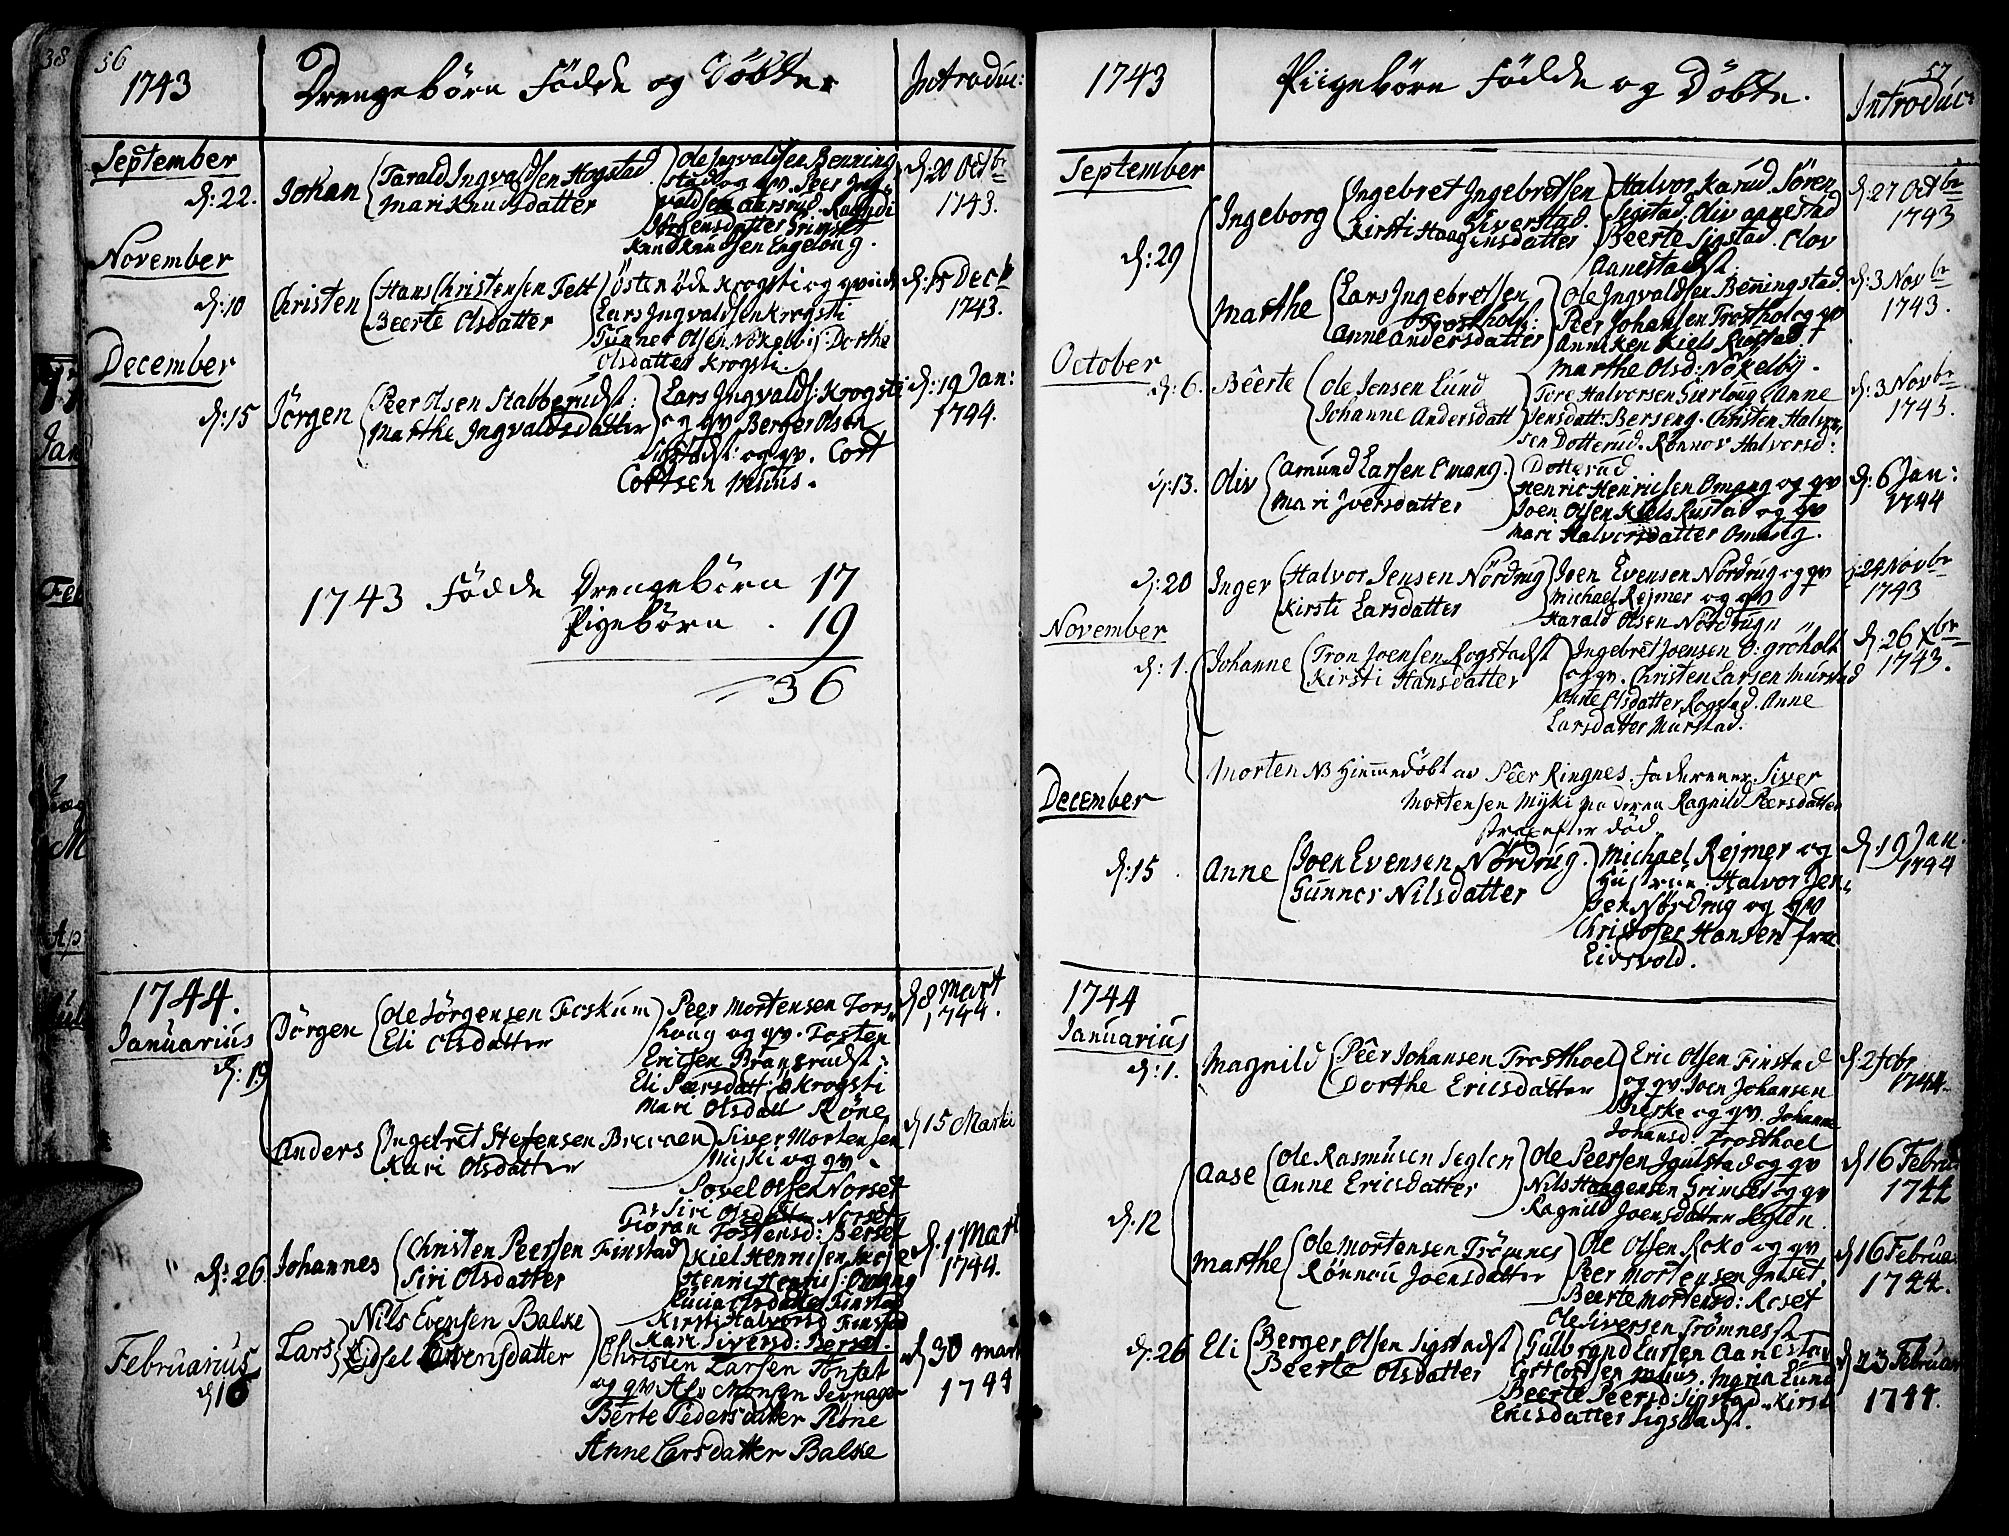 56
1743
Drengebörn Födde og Döbte.
Introduc:
September
d: 22.
Johan
Tarald Ingvaldsen Hogstad
Mari Knudsdatter
Ole Ingvaldsen Benning
stad og qv. Peer Ing
valdsen Aarsrud. Ragndi
Jörgensdatter Grimset
Knud Knudsen Engeloug.
d: 20 Octbr
1743.
November
d: 10
Christen
Hans Christensen Fett
Beerte Olsdatter
Östen öde Krogsti og qvinde
Lars Ingvaldsen Krogsti
Gunner Olsen Nökelbÿ. Dorthe
Olsdatter Krogsti.
d: 15 Decb
1743.
December
d: 15
Jörgen
Peer Olsen Stabberudst:
Marthe Ingvaldsdatter
Lars Ingvalds: Krogsti
og qv Berger Olsen
Sigstadst: og qv. Cort
Cortsen Muus.
d: 19 Jan:
1744.
1743 Födde Drengebörn 17
Pigebörn . 19
36
1744.
Januarius
d: 19
Jörgen
Ole Jörgensen Foskum
Eli Olsdatter
Peer Mortensen Fors
houg og qv. Tosten
Ericsen Bransrudst:
Eli Peersdatt: Krogsti
Mari Olsdatt Röne
d 8 Mart
1744.
Anders
Ingebret Stefensen
Kari Olsdatter
Siver Mortensen
Mijki og qv
Povel Olsen Norset
Siri Olsdatter Norset
Göran Tostensd: Berset
d 15 Marti
d: 26
Johannes
Christen Peersen Finstad
Siri Olsdatter
Kiel Henricsen
Henric Henrics: Omang
Lucia Olsdatter Finstad
Kirsti Halvorsd Finstad
Kari Siversd: Berset.
d. 1 Mart
1744.
Februarius
d 16
Lars
Nils Evensen Balke
Eidsel Evensdatter
Christen Larsen Tonset
og qv. Asv Monsen Jevnager
Berte Pedersdatter Röne
Anne Larsdatter Balke
d 30 mart
1744
57
1743
Piigebörn Födde og Döbte.
Introduc:
September
d: 29
Ingeborg
Ingebret Ingebretsen
Siverstad.
Kirsti Haagensdatter
Halvor Karud. Sören
Sigstad. Oliv Aanestad
Beerte Sigstad. Olov
Aanestadst.
d: 27 Octbr
1743
Marthe
Lars Ingebretsen
Trostholst:
Anne Andersdatter
Ole Ingvaldsen Benningstad.
Peer Johansen Trosthol og qv
Anniken Kiels Rustad.
Marthe Olsd: Nökelby.
d: 3 Novbr
1743.
October
d: 6.
Beerte
Ole Jensen Lund
Johanne Andersdatt
Tore Halvorsen Surloug Anne
Jensdatt: Berseng. Christen Halvor
sen Dotterud. Rönnov Halvorsd:
Dotterud
d: 3 Novbr
1743.
d: 13.
Oliv
Amund Larsen Omang.
Mari Iversdatter
Henric Henricsen Omang og qv
Joen Olsen Kiels Rustad og qv
Mari Halvorsdatter Omang.
d: 6 Jan:
1744
d: 20
Inger
Halvor Jensen Nördrug
Kirsti Larsdatter
Joen Evensen Nördrug og qv
Michael Rejmer og qv
Harald Olsen Nördrug
d: 24 Novbr
1743
November
d: 1.
Johanne
Tron Joensen Rogstadst
Kirsti Hansdatter
Ingebret Joensen Ö: gröholt
og qv. Christen Larsen Murstad
Anne Olsdatter Rogstad. Anne
Larsdatter Murstad.
d: 26 Xbr
1743.
Morten NB Hiemmedöbt av Peer Ringnes. Faderen er Siver
Mortensen Mÿki Moderen Ragnild Peersdatter
strax efter död
December
d: 15
Anne
Joen Evensen Nördrug.
Gunner Nilsdatter
Michael Rejmer og
Hustrue. Halvor Jen
sen Nördrug og qv
Christofer Hansen fra
Eidsvold.
d: 19 Jan.
1744
1744
Januarius
d: 1.
Magnild
Peer Johansen Trosthoel
Dorthe Ericsdatter
Eric Olsen Finstad
og qv. Joen Johansen
og qv Johanne
Johansd: Trosthoel
d: 2 febr
1744.
d: 12
Aase
Ole Rasmusen Seglen
Anne Ericsdatter
Ole Peersen Igulstad og qv
Nils Haagensen Grimset og qv
Ragnild Joensdatter Seglen.
d 16 Februa
1744
Marthe
Ole Mortensen Trömnes
Rönnou Joensdatter
Ole Olsen Roko og qv
Peer Mortensen Inset.
Beerte Mortensd: Roset
Ole Iversen Trömnesst
d 16 Februa
1744.
d: 26
Eli
Berger Olsen Sigstadst
Beerte Olsdatter
Gulbrand Larsen Aanestad
Cort Cortsen Muus. Maria Lund
Beerte Peersd: Sigstad. Kirsti
Ericsdatter Sigstadst.
d 23 Februar
1744.